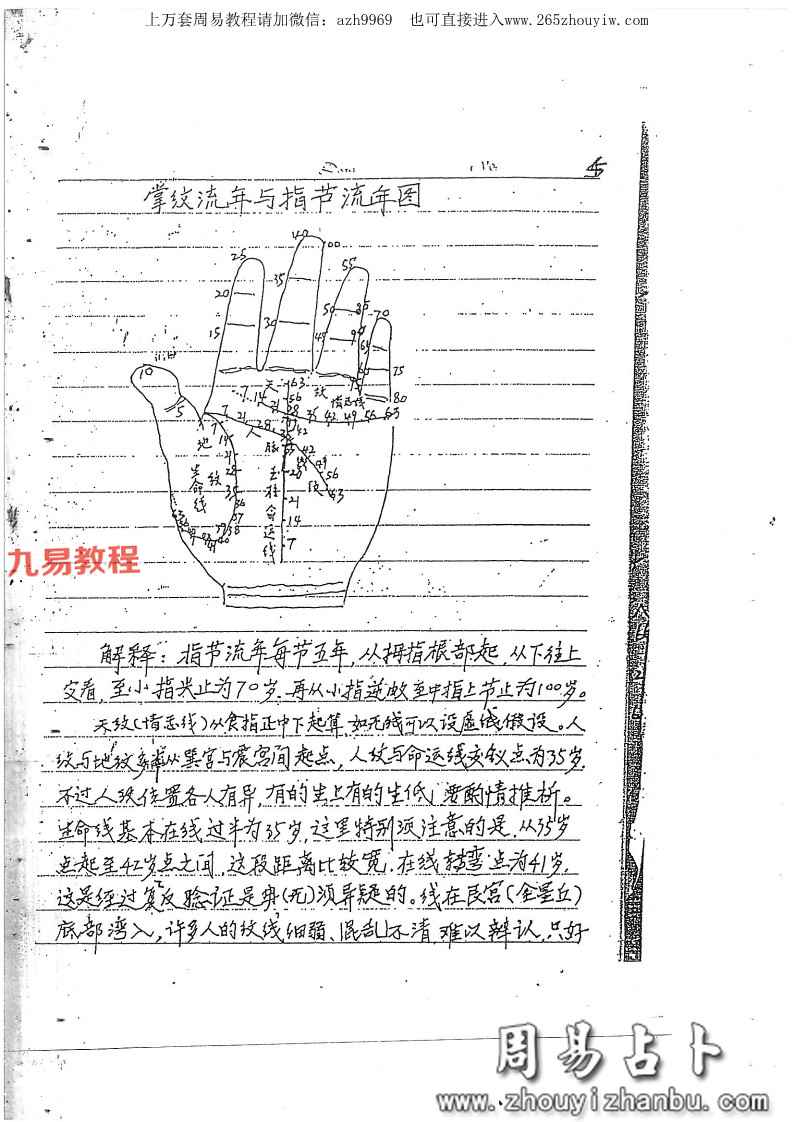 上万套周易教程请加微信：azh9969 也可直接进入www.265zhouyiw.com
掌纹流年与指节流年图
40
100
25
35
55
20
50
85
70
15
30
45
75
10
5
天 63
纹
情志线
80
7 14 21
56
7 21 28
35 42 49 56 63
地
人
脉
纹
生命线
玉柱命运线
42
49
56
63
28
21
14
7
九易教程
解释：指节流年每节五年，从拇指根部起，从下往上
交看，至小指尖止为70岁，再从小指逆数至中指上节止为100岁。
天纹(情志线)从食指正中下起算，如无线可以设虚线假设。人
纹与地纹从巽宫与震宫间起点，人纹与命运线交叉点为35岁，
不过人纹位置各人有异，有的生上有的生低，要酌情推析。
生命线基本在线过半为35岁，这里特别注意的是，从35岁
点起至42岁点之间，这段距离比较宽，在线转弯点为41岁，
这是经过反复验证是毋(无)须异疑的。线在艮宫(金星丘)
底部湾入，许多人的纹线细弱、混乱不清，难以辨认，只好
周易占卜
www.zhouyizhanbu.com